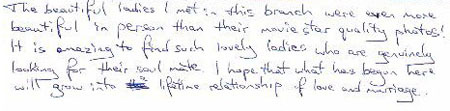 The beautiful ladies I met in this branch were even more
beautiful in person than their movie star quality photos!
It is amazing to find such lovely ladies who are genuinely
looking for their soul mate. I hope that what has begun here
will grow into a lifetime relationship of love and marriage.